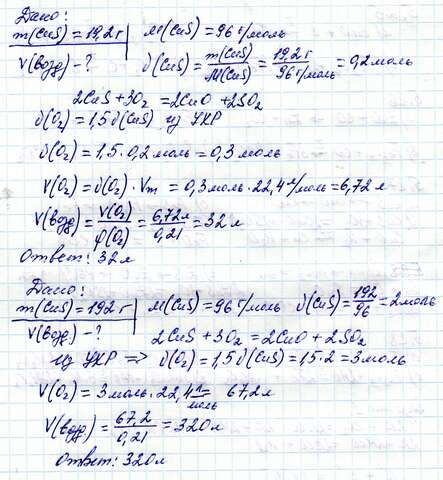 Дано:
m(CuS)=19,2г M(CuS)=96 г/моль
V(возд)-? ν(CuS)=m(CuS)/M(CuS)=19,2г/96г/моль=0,2моль
2CuS+3O₂=2CuO+2SO₂
ν(O₂)=1,5ν(CuS) из УХР
ν(O₂)=1,5·0,2моль=0,3моль
V(O₂)=ν(O₂)·Vm=0,3моль·22,4л/моль=6,72л
V(возд)=V(O₂)/φ(O₂)=6,72л/0,21=32л
Ответ: 32л
Дано:
m(CuS)=192г M(CuS)=96г/моль ν(CuS)=192/96=2моль
V(возд)-? 2CuS+3O₂=2CuO+2SO₂
из УХР => ν(O₂)=1,5ν(CuS)=1,5·2=3моль
V(O₂)=3моль·22,4л/моль 67,2л
V(возд)=67,2/0,21=320л
Ответ: 320л